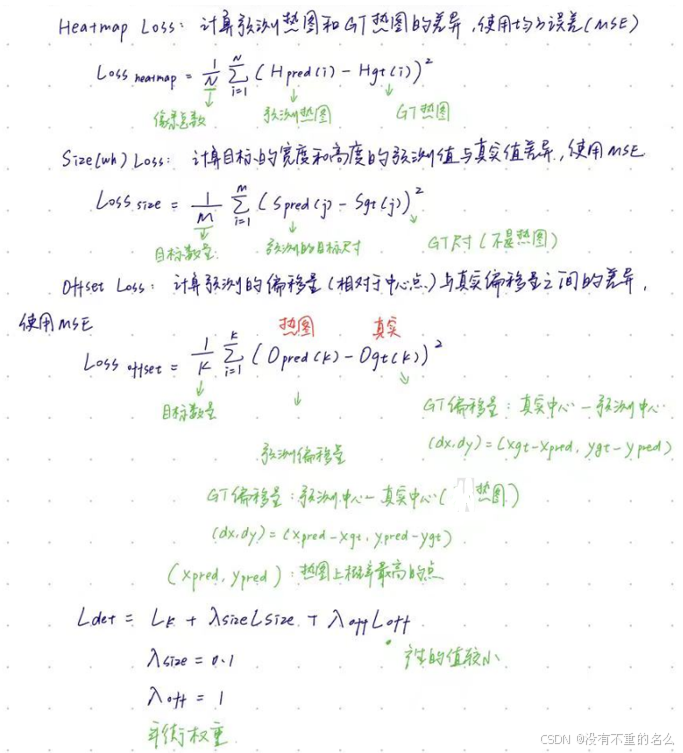 Heatmap Loss: 计算预测热图和GT热图的差异,使用均方误差(MSE)
Loss heatmap = 1/N ∑ᴺᵢ₌₁ (Hpred(i) - Hgt(i))²
像素总数 预测热图 GT热图
Size(wh) Loss: 计算目标的宽度和高度的预测值与真实值差异,使用MSE
Loss size = 1/M ∑ᴹᵢ₌₁ (Spred(j) - Sgt(j))²
目标数量 预测的目标尺寸 GT尺寸(不是热图)
Offset Loss: 计算预测的偏移量(相对于中心点)与真实偏移量之间的差异,
使用MSE
热图 真实
Loss offset = 1/K ∑ᴷᵢ₌₁ (Opred(k) - Ogt(k))²
目标数量
GT偏移量: 真实中心-预测中心
(dx,dy)=(xgt-xpred, ygt-ypred)
预测偏移量
GT偏移量: 预测中心-真实中心(热图)
(dx,dy)=(xpred-xgt, ypred-ygt)
(xpred, ypred): 热图上概率最高的点
Ldet = Lk + λsizeLsize + λoffLoff
λsize = 0.1
产生的值较小
λoff = 1
平衡权重
CSDN @没有不重的名么